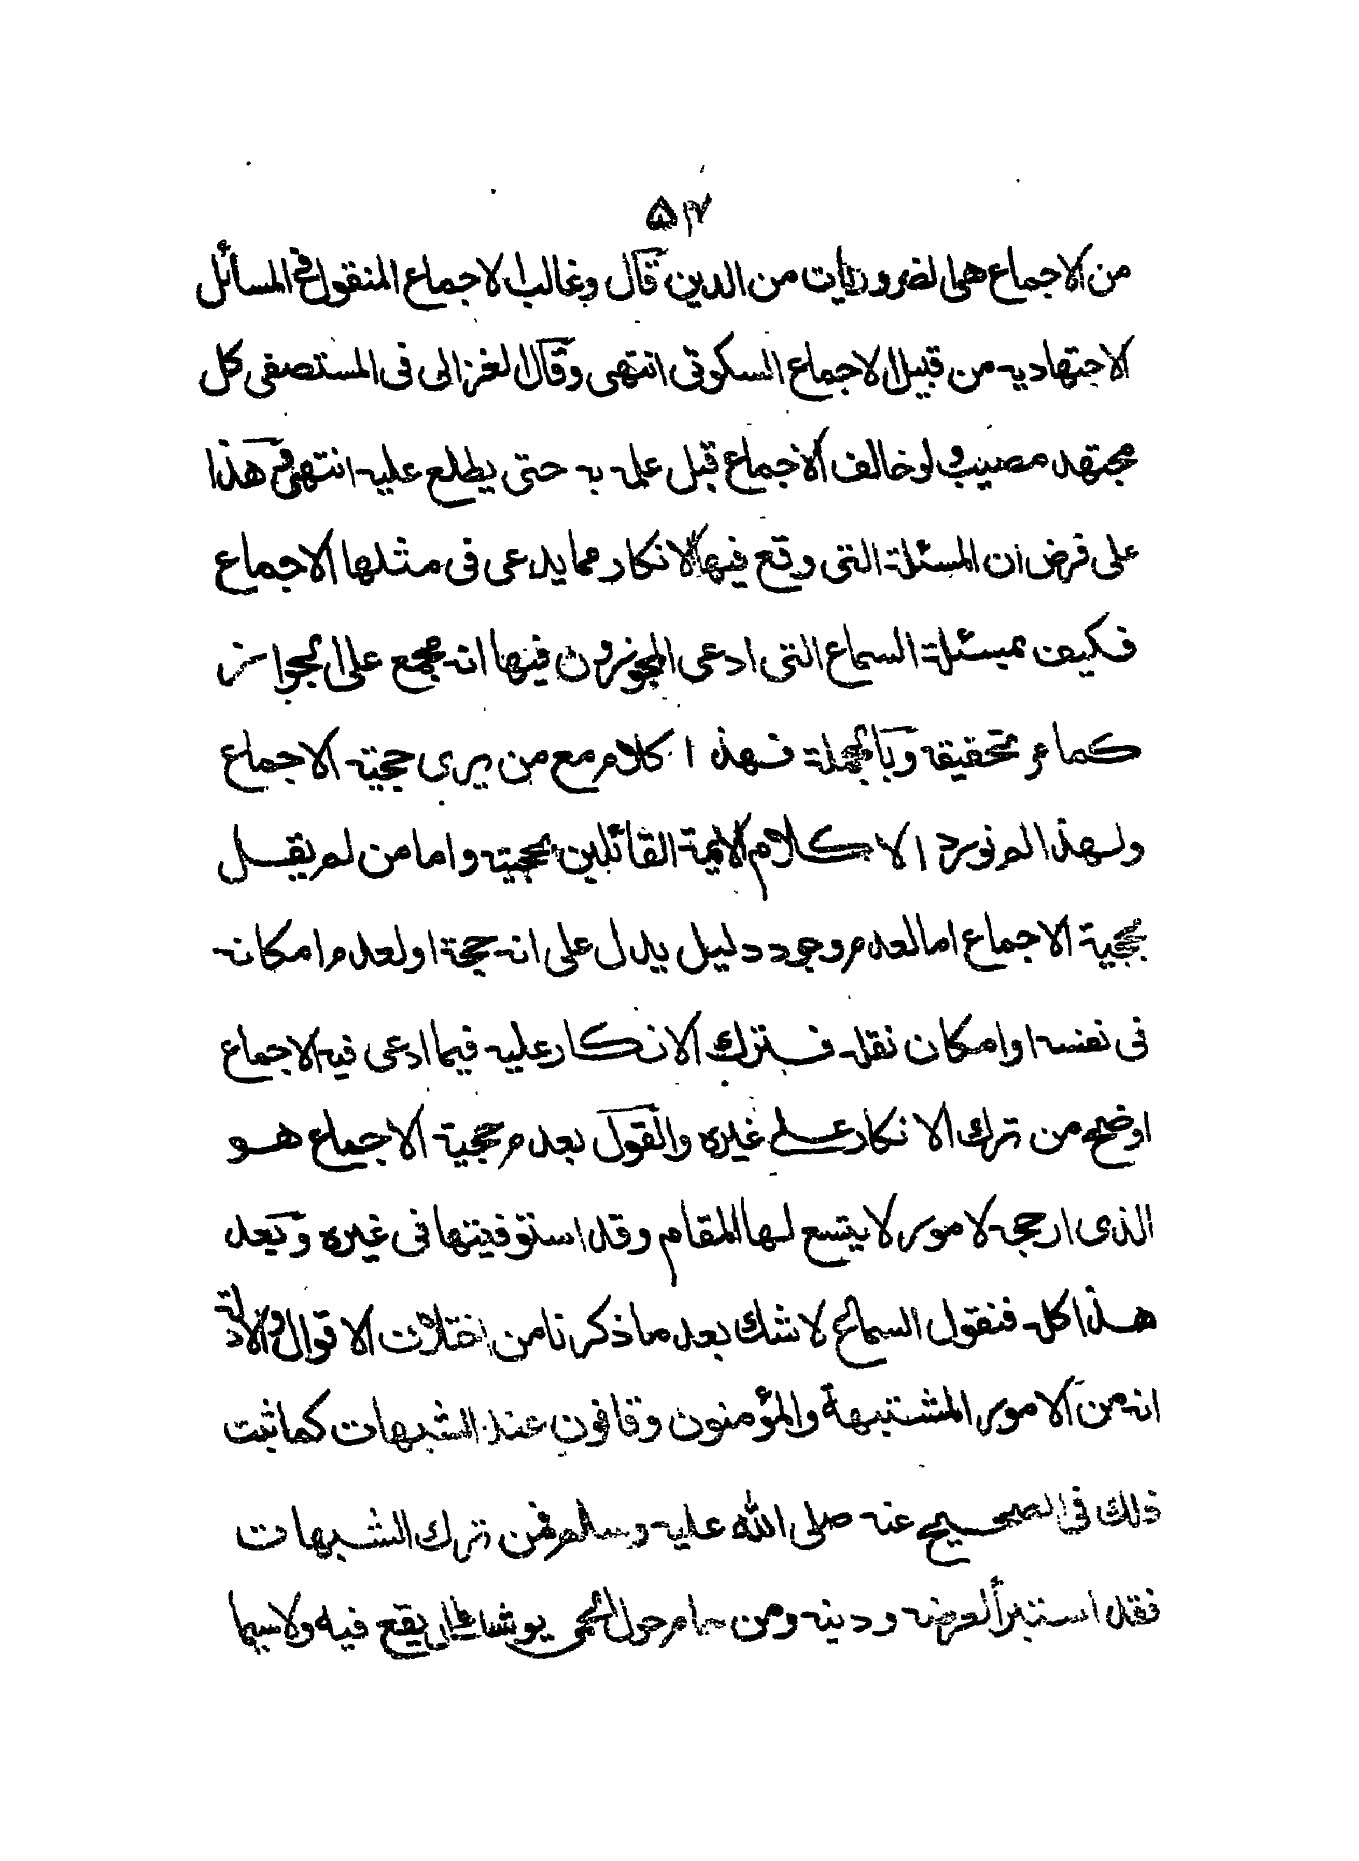 من الاجماع هي الضروريات من الدين قال وغالب الاجماع المنقول في المسائل
الاجتهاديه من قبيل الاجماع السكوتي انتهى وقال الغزالي في المستصفى كل
مجتهد مصيب ولو خالف الاجماع قبل علمه به حتى يطلع عليه انتهى في هذا
على فرض ان المسئلة التي وقع فيها الانكار مما يدعى في مثلها الاجماع
فكيف بمسئلة السماع التي ادعى المجوزون فيها انه مجمع على الجواز
كما مر تحقيقه وبالجملة فهذا كلام مع من يرى حجيته الاجماع
ولهذا لم نورد الا كلام الائمة القائلين بحجيته واما من لم يقل
بحجية الاجماع اما لعدم وجود دليل يدل على انه حجة او لعدم امكانه
في نفسه او امكان نقله فترك الانكار عليه فيما ادعى فيه الاجماع
اوضح من ترك الانكار على غيره والقول بعدم حجية الاجماع هو
الذي ارجحه لامور لا يتسع لها المقام وقد استوفيتها في غيره وبعد
هذا كله فنقول السماع لا شك بعد ما ذكرنا من اختلاف الاقوال والادلة
انه من الامور المشتبهة والمؤمنون وقافون عند الشبهات كما ثبت
ذلك في الصحيح عنه صلى الله عليه وسلم فمن ترك الشبهات
فقد استبرأ لعرضه ودينه ومن حام حول الحمى يوشك ان يقع فيه ولا سيما